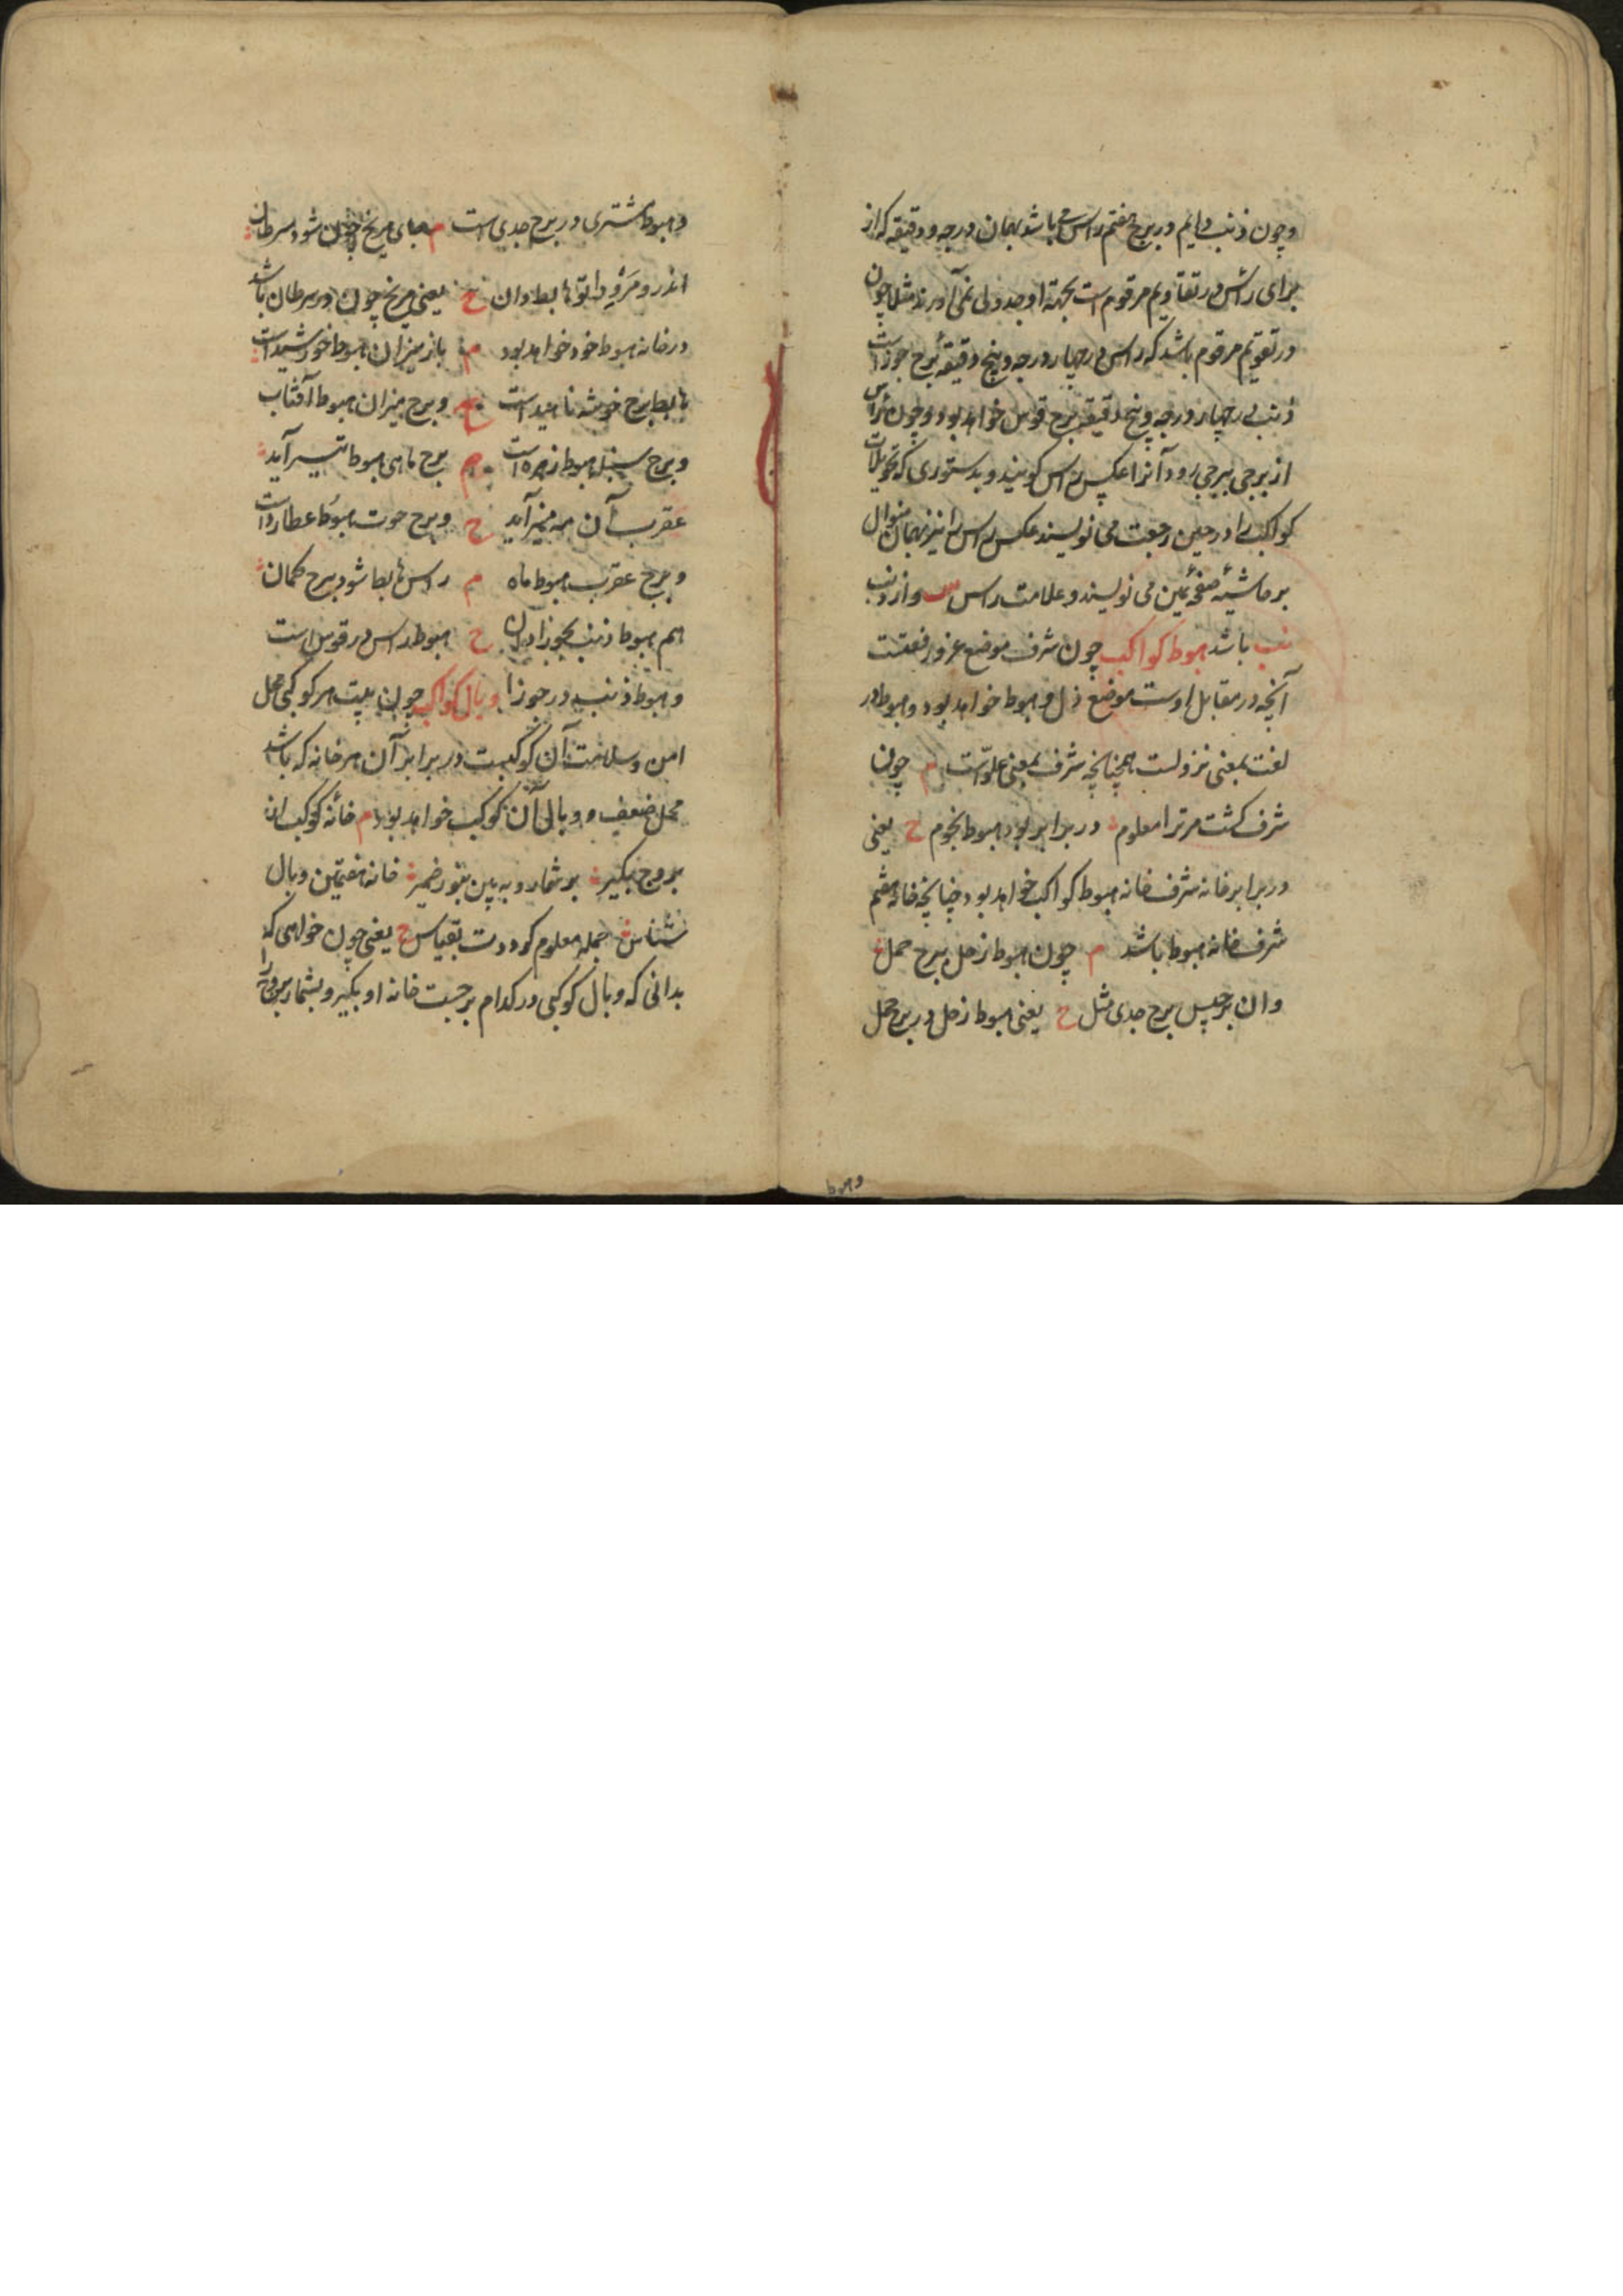 وچون ذنب دایم در برج هفتم راس می باشد بهمان درجه و دقیقه که از
برای راس در تقاویم مرقوم است بجهة او جدولی نمی آورند مثلا چون
در تقویم مرقوم باشد که راس در چهار درجه و پنج دقیقهٔ برج جوزا است
ذنب در چهار درجه و پنج دقیقهٔ برج قوس خواهد بود و چون راس
از برجی ببرجی رود آنرا عکس راس کویند و بدستوری که تحویلات
کواکب را در حین رجعت می نویسند عکس راس را نیز بهمان منوال
بر حاشیهٔ صفحهٔ یمین می نویسند و علامت راس س و از ذنب
نب باشد هبوط کواکب چون شرف موضع عز و رفعتست
آنچه در مقابل اوست موضع ذل و هبوط خواهد بود و هبوط در
لغت بمعنی نزولست همچنانچه شرف بمعنی علوّست م چون
شرف کشت مر ترا معلوم در برابر بود هبوط نجوم ح یعنی
در برابر خانه شرف خانه هبوط کواکب خواهد بود چنانچه خانهٔ هفتم
شرف خانه هبوط باشد م چون هبوط زحل ببرج حمل
وان برجیس برج جدی مثل ح یعنی هبوط زحل در برج حمل
و هبوط مشتری در برج جدی است م جای مریخ چون شود سرطان
اندرو مر ورا تو هابط دان ح یعنی مریخ چون در سرطان باشد
در خانه هبوط خود خواهد بود م باز میزان هبوط خورشید است
هابط برج خوشه ناهید است ح و برج میزان هبوط آفتاب
و برج سنبله هبوط زهره است م برج ماهی هبوط تیر آید
عقرب آن مه منیر آید ح و برج حوت هبوط عطارد است
و برج عقرب هبوط ماه م راس هابط شود ببرج کمان
هم هبوط ذنب بجوزا دان ح هبوط راس در قوس است
و هبوط ذنب در جوزا وبال کواکب چون بیت هر کوکبی محل
امن و سلامت آن کوکبست در برابر آن هر خانه که باشد
محل ضعف و وبال آن کوکب خواهد بود م خانهٔ کوکب از
بروج بکیر بر شمار و به بین بنور ضمیر خانه هفتمین وبال
شناس جمله معلوم کرددت بقیاس ح یعنی چون خواهی که
بدانی که وبال کوکبی در کدام برجست خانه او بکیر و بشمار بروج را